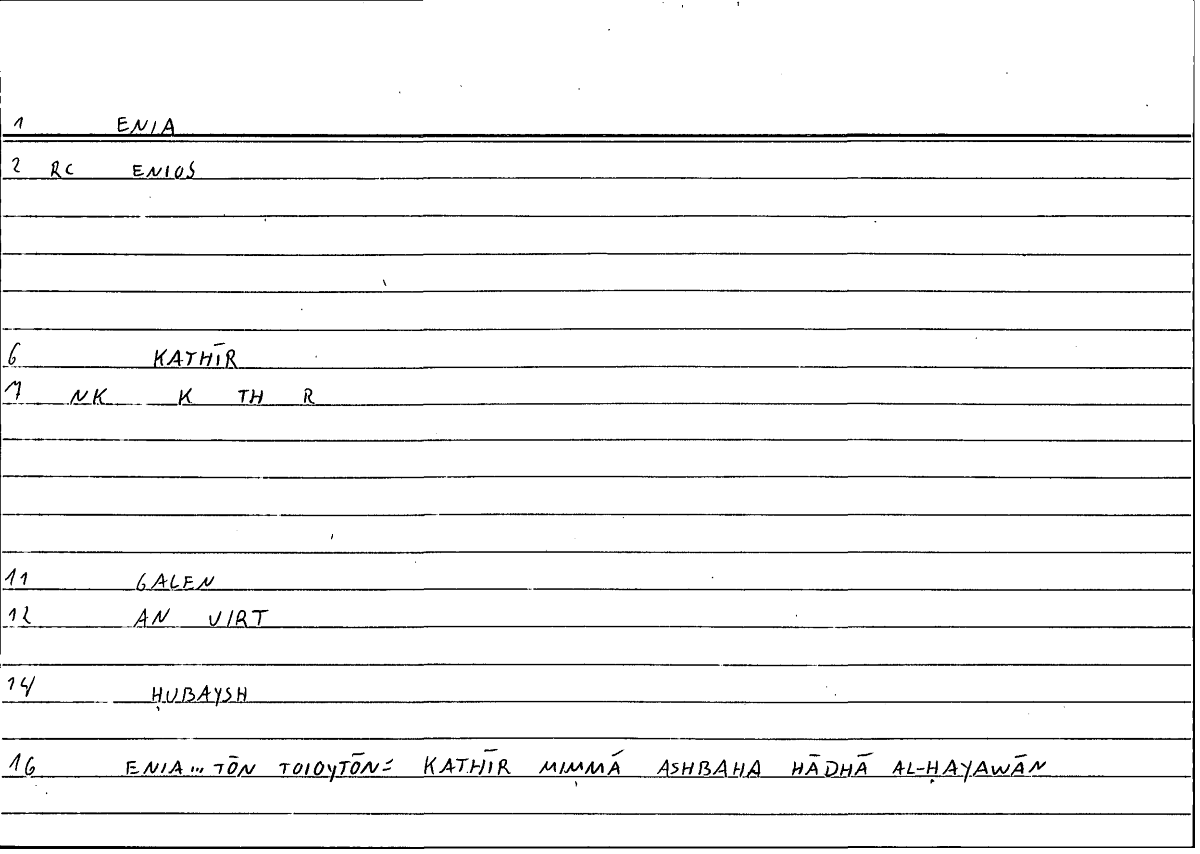 1 ENIA
2 RC ENIOS
6 KATHĪR
7 NK K TH R
11 GALEN
12 AN VIRT
14 ḤUBAYSH
16 ENIA... TŌN TOIOYTŌN= KATHĪR MIMMÁ ASHBAHA HĀDHĀ AL-ḤAYAWĀN